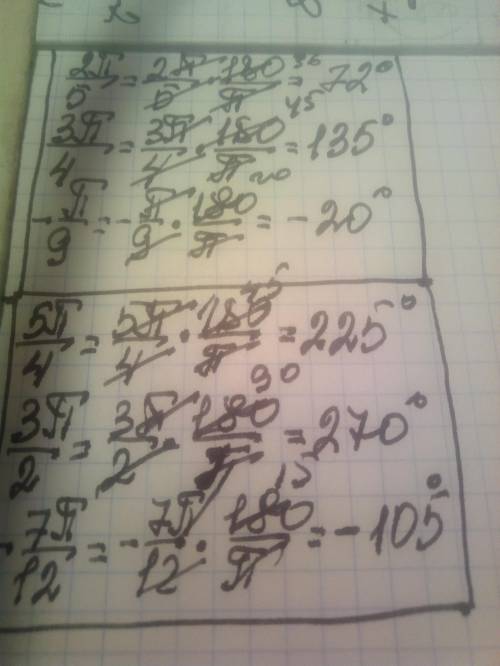 2π/5 = 2π/5 · 180/π 36 = 72°
3π/4 = 3π/4 · 180/π 45 = 135°
-π/9 = -π/9 · 180/π 20 = -20°
5π/4 = 5π/4 · 180/π 45 = 225°
3π/2 = 3π/2 · 180/π 90 = 270°
-7π/12 = -7π/12 · 180/π 15 = -105°